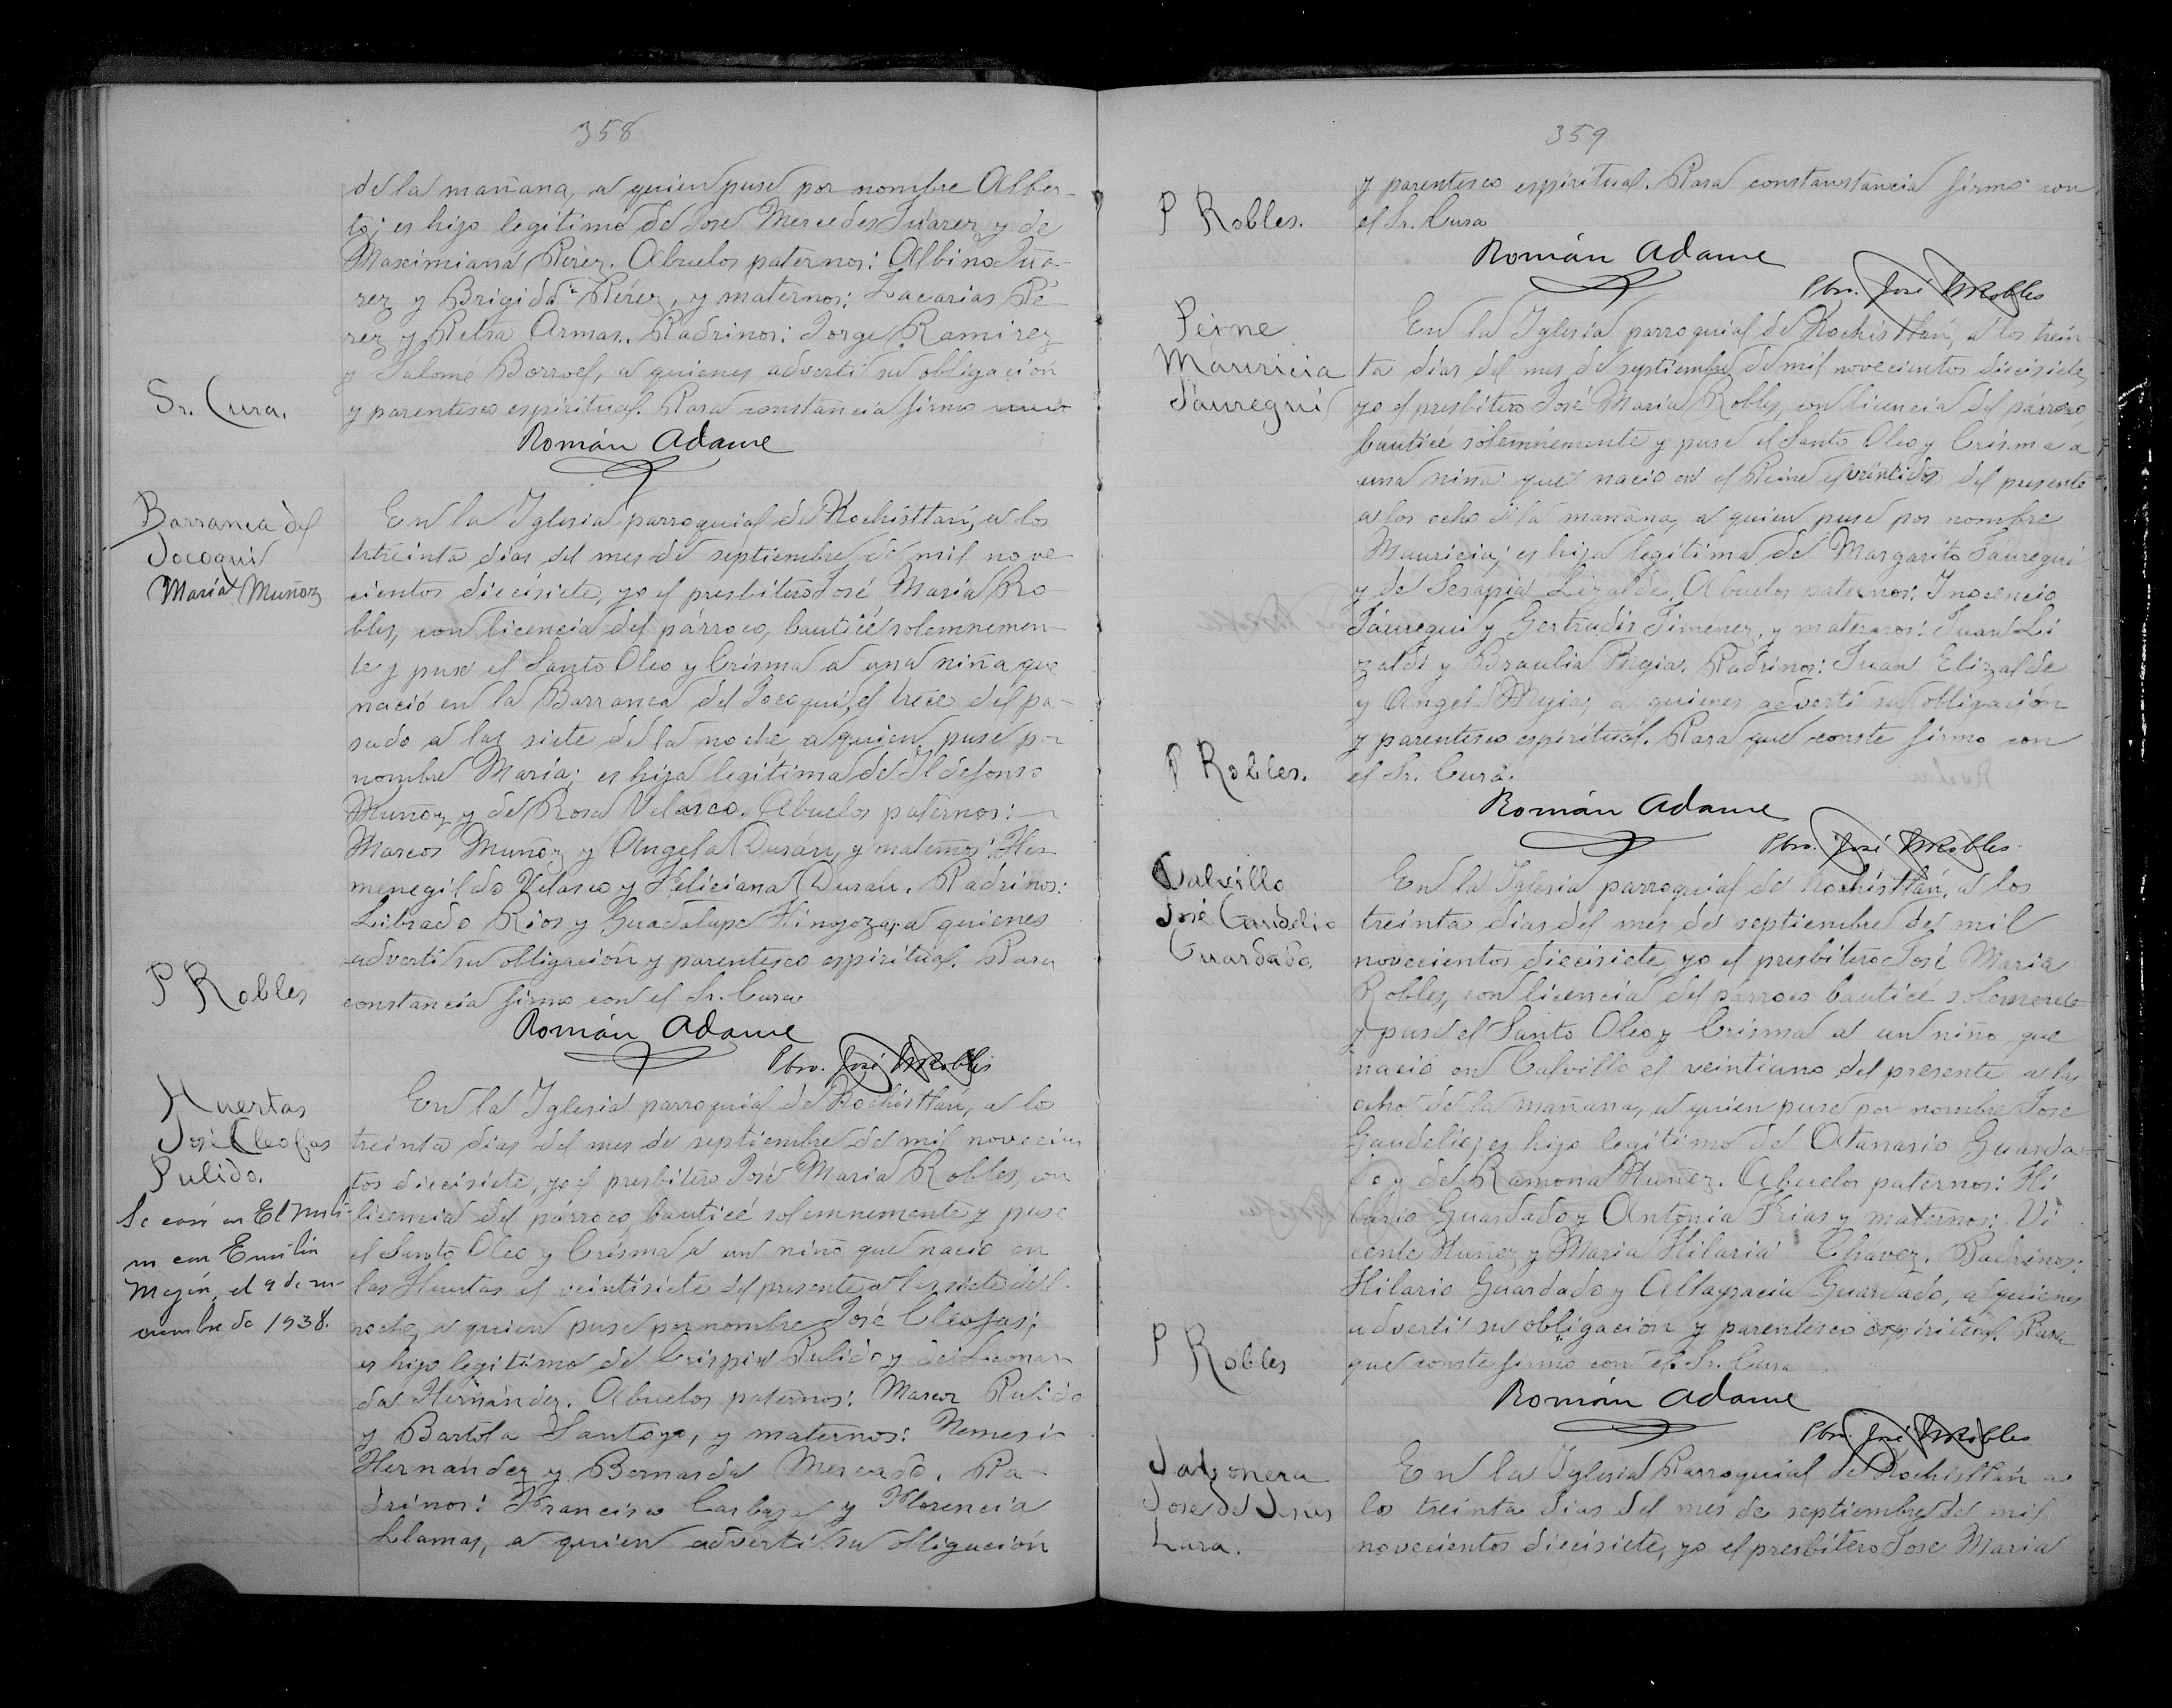 358
de la mañana, a quien puse por nombre Alber-
to; es hijo legítimo de José Mercedes Juárez y de
Maximiana Pérez. Abuelos paternos: Albino Juá-
rez y Brigida Pérez, y maternos: Zacarias Pé-
rez y Petra Armas. Padrinos: Jorge Ramirez
y Salomé Borroel, a quienes advertí su obligación
Sr. Cura.
y parentesco espiritual. Para constancia firmo
Román Adame
Barranca del
Jocoqui
María Muñoz
En la Iglesia parroquial de Nochistlán, a los
trtreinta días del mes de septiembre de mil nove
cientos diecisiete, yo el presbítero José María Ro-
bles, con licencia del párroco, bauticé solemnemen-
te y puse el Santo Oleo y Crisma a una niña que
nació en la Barranca del Jocoqui, el trece del pa-
sado a las siete de la noche, a quien puse por
nombre María; es hija legítima de Ildefonso
Muñoz y de Rosa Velasco. Abuelos paternos:
Marcos Muñoz y Angela Durán, y maternos: Her
menegildo Velasco y Feliciana Durán. Padrinos:
Librado Rios y Guadalupe Hinojoza, a quienes
advertí su obligación y parentesco espiritual. Para
P Robles
constancia firmo con el Sr. Cura
Román Adame
Pbro. José M Robles
Huertas
José Cleofas
Pulido.
Se casó en El
con Emilia
Mejía, el 9 de
1938.
En la Iglesia parroquial de Nochistlán, a los
treinta días del mes de septiembre de mil novecien
tos diecisiete, yo el presbítero José María Robles, con
licencia del párroco bauticé solemnemente y puse
el Santo Oleo y Crisma a un niño que nació en
las Huertas el veintisiete del presente a las siete de l
noche, a quien puse por nombre José Cleofas;
es hijo legítimo de Crispin Pulido y de Leonar-
da Hernández. Abuelos paternos: Marcos Pulido
y Bartola Santoyo, y maternos: Nemesio
Hernández y Bernarda Mercado. Pa-
drinos: Francisco Carbajal y Florencia
Llamas, a quien advertí su obligación
359
y parentesco espiritual. Para constanstancia firmo con
P Robles.
el Sr. Cura
Román Adame
Pbro. José M Robles
Peine
Mauricia
Jauregui
En la Iglesia parroquial de Nochistlán, a los trein
ta días del mes de septiembre de mil novecientos diecisiete,
yo el presbítero José María Robles, con licencia del párroco
bauticé solemnemente y puse el Santo Oleo y Crisma a
una niña que nació en el Peine el veintidos del presente
a las ocho de la mañana, a quien puse por nombre
Mauricia; es hija legítima de Margarito Jauregui
y de Serapia Lizalde. Abuelos paternos: Inocencio
Jauregui y Gertrudis Jimenez, y maternos: Juan Li
zaldi y Braulia Mejia. Padrinos: Juan Elizalde
y Angela Mejia; a quienes advertí su obligación
y parentesco espiritual. Para que conste firmo con
P Robles.
el Sr. Cura.
Román Adame
Pbro. José M Robles.
Calvillo
José Gaudelio
Guardado.
En la Iglesia parroquial de Nochistlán, a los
treinta días del mes de septiembre de mil
novecientos diecisiete, yo el presbítero José María
Robles, con licencia del párroco bauticé solemnete
y puse el Santo Oleo y Crisma a un niño que
nació en Calvillo el veintiuno del presente a las
ocho de la mañana, a quien puse por nombre José
Gaudelio; es hijo legítimo de Atanasio Guarda
do y de Ramona Nuñez. Abuelos paternos: Hi
lario Guardado y Antonia Frias y maternos: Vi
cente Nuñez y María Hilaria Chávez. Padrinos:
Hilario Guardado y Altagracia Guardado, a quienes
advertí su obligación y parentesco espiritual. Para
P Robles
que conste firmo con el Sr. Cura
Román Adame
Pbro. José M Robles
Jabonera
José de Jesús
Lara.
En la Iglesia Parroquial de Nochistlán a
los treinta días del mes de septiembre de mil
novecientos diecisiete, yo el presbítero José María